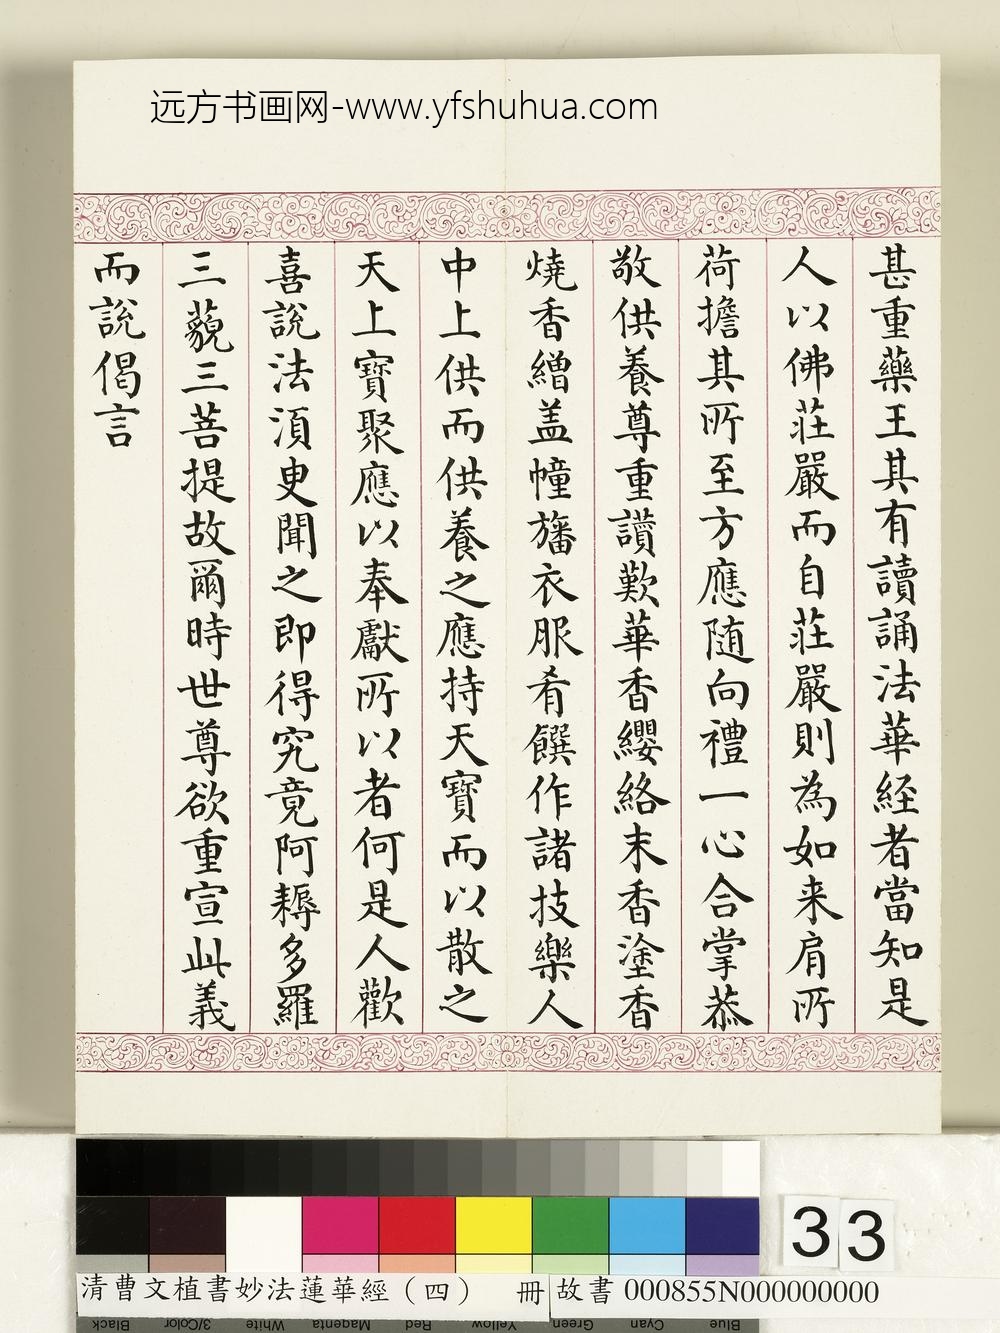 远方书画网-www.yfshuhua.com
甚重藥王其有讀誦法華経者當知是
人以佛莊嚴而自莊嚴則為如来肩所
荷擔其所至方應随向禮一心合掌恭
敬供養尊重讚歎華香纓絡末香塗香
燒香繒盖幢旛衣服肴饌作諸技樂人
中上供而供養之應持天寶而以散之
天上寶聚應以奉獻所以者何是人歡
喜說法湏臾聞之即得究竟阿耨多羅
三藐三菩提故爾時世尊欲重宣此義
而說偈言
33
清曹文植書妙法蓮華經（四） 冊
故書 000855N000000000
Black 3/Color White Magenta Red Yellow Green Cyan Blue